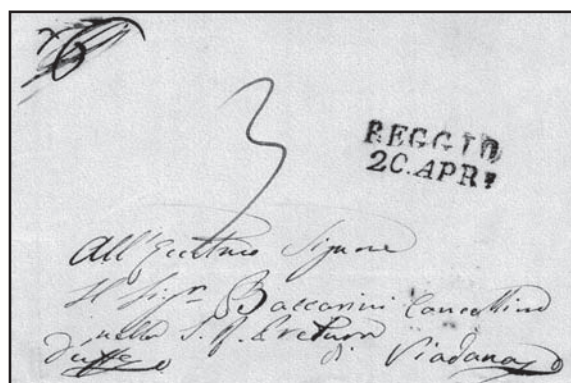 3
REGGIO
20.APR.
All' Signore
Il Sigr Baccarini Cancellino
nella I. R. Pretura
di Viadana